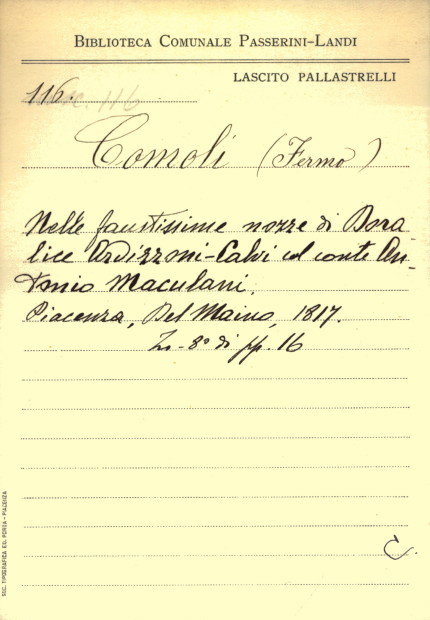 BIBLIOTECA COMUNALE PASSERINI-LANDI
LASCITO PALLASTRELLI
116. c. 116
Comoli (Fermo)
Nelle faustissime nozze di Bea
lice Ardizzoni-Calvi col conte An-
tonio Maculani.
Piacenza, Del Maino, 1817.
In-8º di pp. 16
C.
SOC. TIPOGRAFICA ED. PORTA - PIACENZA